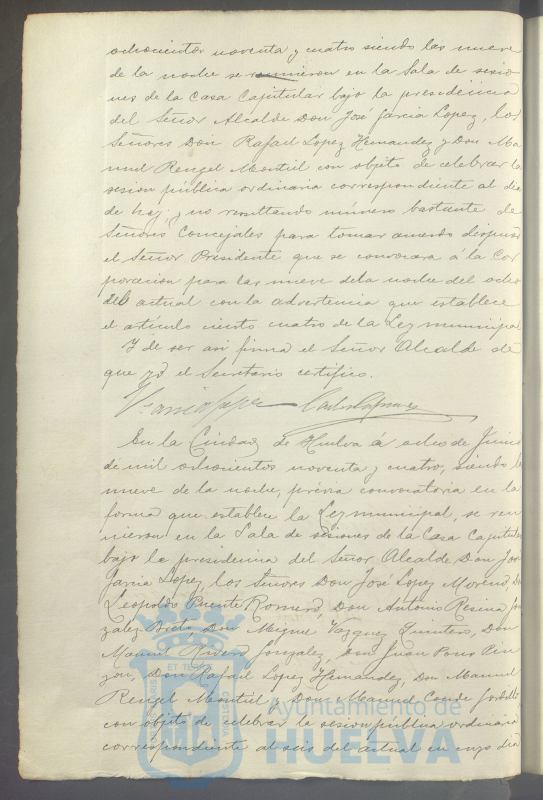 ochocientos noventa y cuatro siendo las nueve
de la noche se reunieron en la Sala de sesio
nes de la Casa Capitular bajo la presidencia
del Señor Alcalde Don José Garcia Lopez, los
Señores Don Rafael Lopez Hernandez y Don Ma
nuel Rengel Montiel con objeto de celebrar la
sesion pública ordinaria correspondiente al dia
de hoy, y no resultando número bastante de
Señores Concejales para tomar acuerdo dispuso
el Señor Presidente que se convocara á la Cor
poracion para las nueve dela noche del ocho
del actual con la advertencia que establece
el artículo ciento cuatro de la Ley municipal
Y de ser asi firma el Señor Alcalde de
que yo el Secretario certifico.
En la Ciudad de Huelva á ocho de Junio
de mil ochocientos noventa y cuatro, siendo la
nueve de la noche, prévia convocatoria en la
forma que establece la Ley municipal, se reu
nieron en la Sala de sesiones de la Casa Capitular
bajo la presidencia del Señor Alcalde Don José
Garcia Lopez, los Señores Don José Lopez Moreno, Don
Leopoldo Puente Romero, Don Antonio Resina Gon
zalez Don Miguel Vazquez Quintero, Don
Manuel Rivero Gonzalez, Don Juan Pons Pin
zon, Don Rafael Lopez Hernandez, Don Manuel
Rengel Montiel y Don Manuel Conde
con objeto de celebrar la sesion pública ordinaria
correspondiente al seis del actual en cuyo dia
Ayuntamiento de
HUELVA